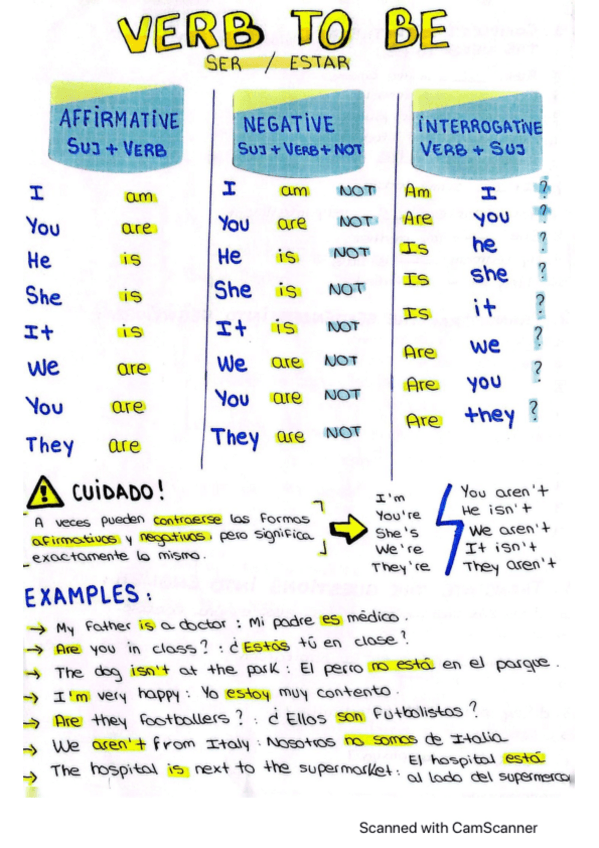 VERB TO BE
SER / ESTAR
AFFIRMATIVE
SUJ + VERB
I am
You are
He is
She is
It is
We are
You are
They are
NEGATIVE
SUJ + VERB + NOT
I am NOT
You are NOT
He is NOT
She is NOT
It is NOT
We are NOT
You are NOT
They are NOT
INTERROGATIVE
VERB + SUJ
Am I ?
Are you ?
Is he ?
Is she ?
Is it ?
Are we ?
Are you ?
Are they ?
CUIDADO!
A veces pueden contraerse las formas
afirmativas y negativas, pero significa
exactamente lo mismo.
I'm
You're
She's
We're
They're
You aren't
He isn't
We aren't
It isn't
They aren't
EXAMPLES:
→ My father is a doctor : Mi padre es médico.
→ Are you in class? : ¿Estás tú en clase?
→ The dog isn't at the park : El perro no está en el parque.
→ I'm very happy : Yo estoy muy contento.
→ Are they footballers? : ¿Ellos son futbolistas?
→ We aren't from Italy : Nosotros no somos de Italia
→ The hospital is next to the supermarket : El hospital está
al lado del supermerca
Scanned with CamScanner